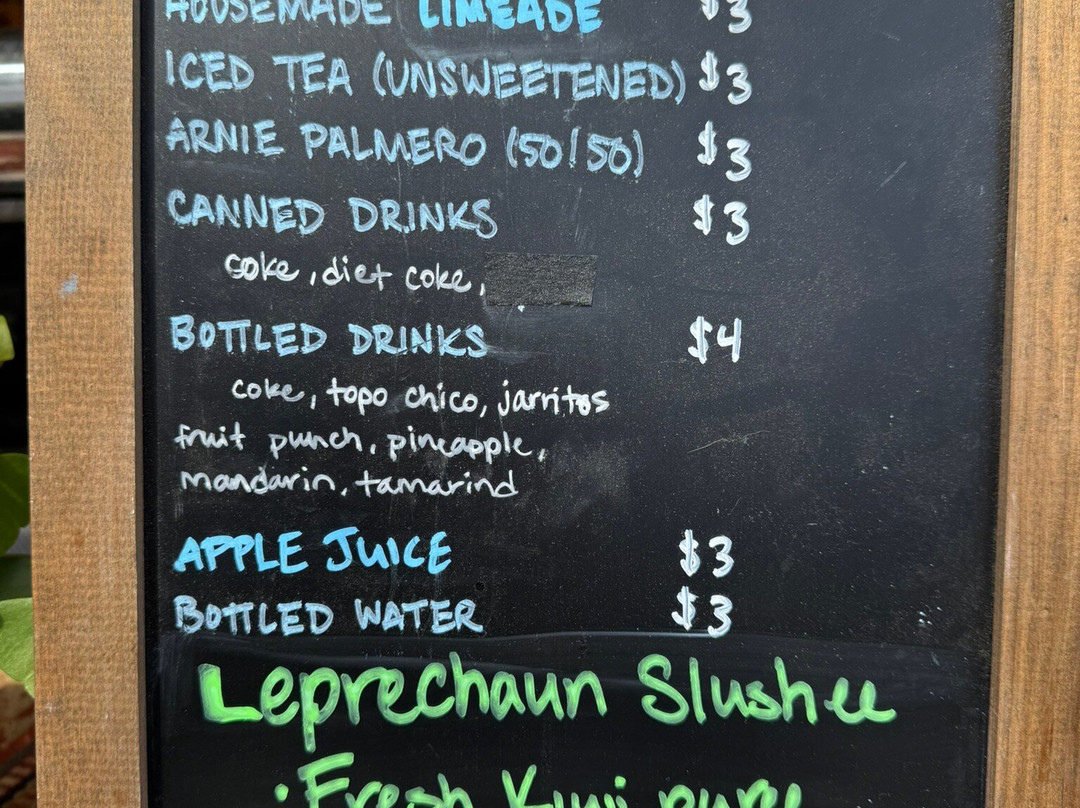 HOUSEMADE LIMEADE $3
ICED TEA (UNSWEETENED) $3
ARNIE PALMERO (50/50) $3
CANNED DRINKS $3
coke, diet coke,
BOTTLED DRINKS $4
coke, topo chico, jarritos
fruit punch, pineapple,
mandarin, tamarind
APPLE JUICE $3
BOTTLED WATER $3
Leprechaun Slushee
• Fresh Kiwi puree